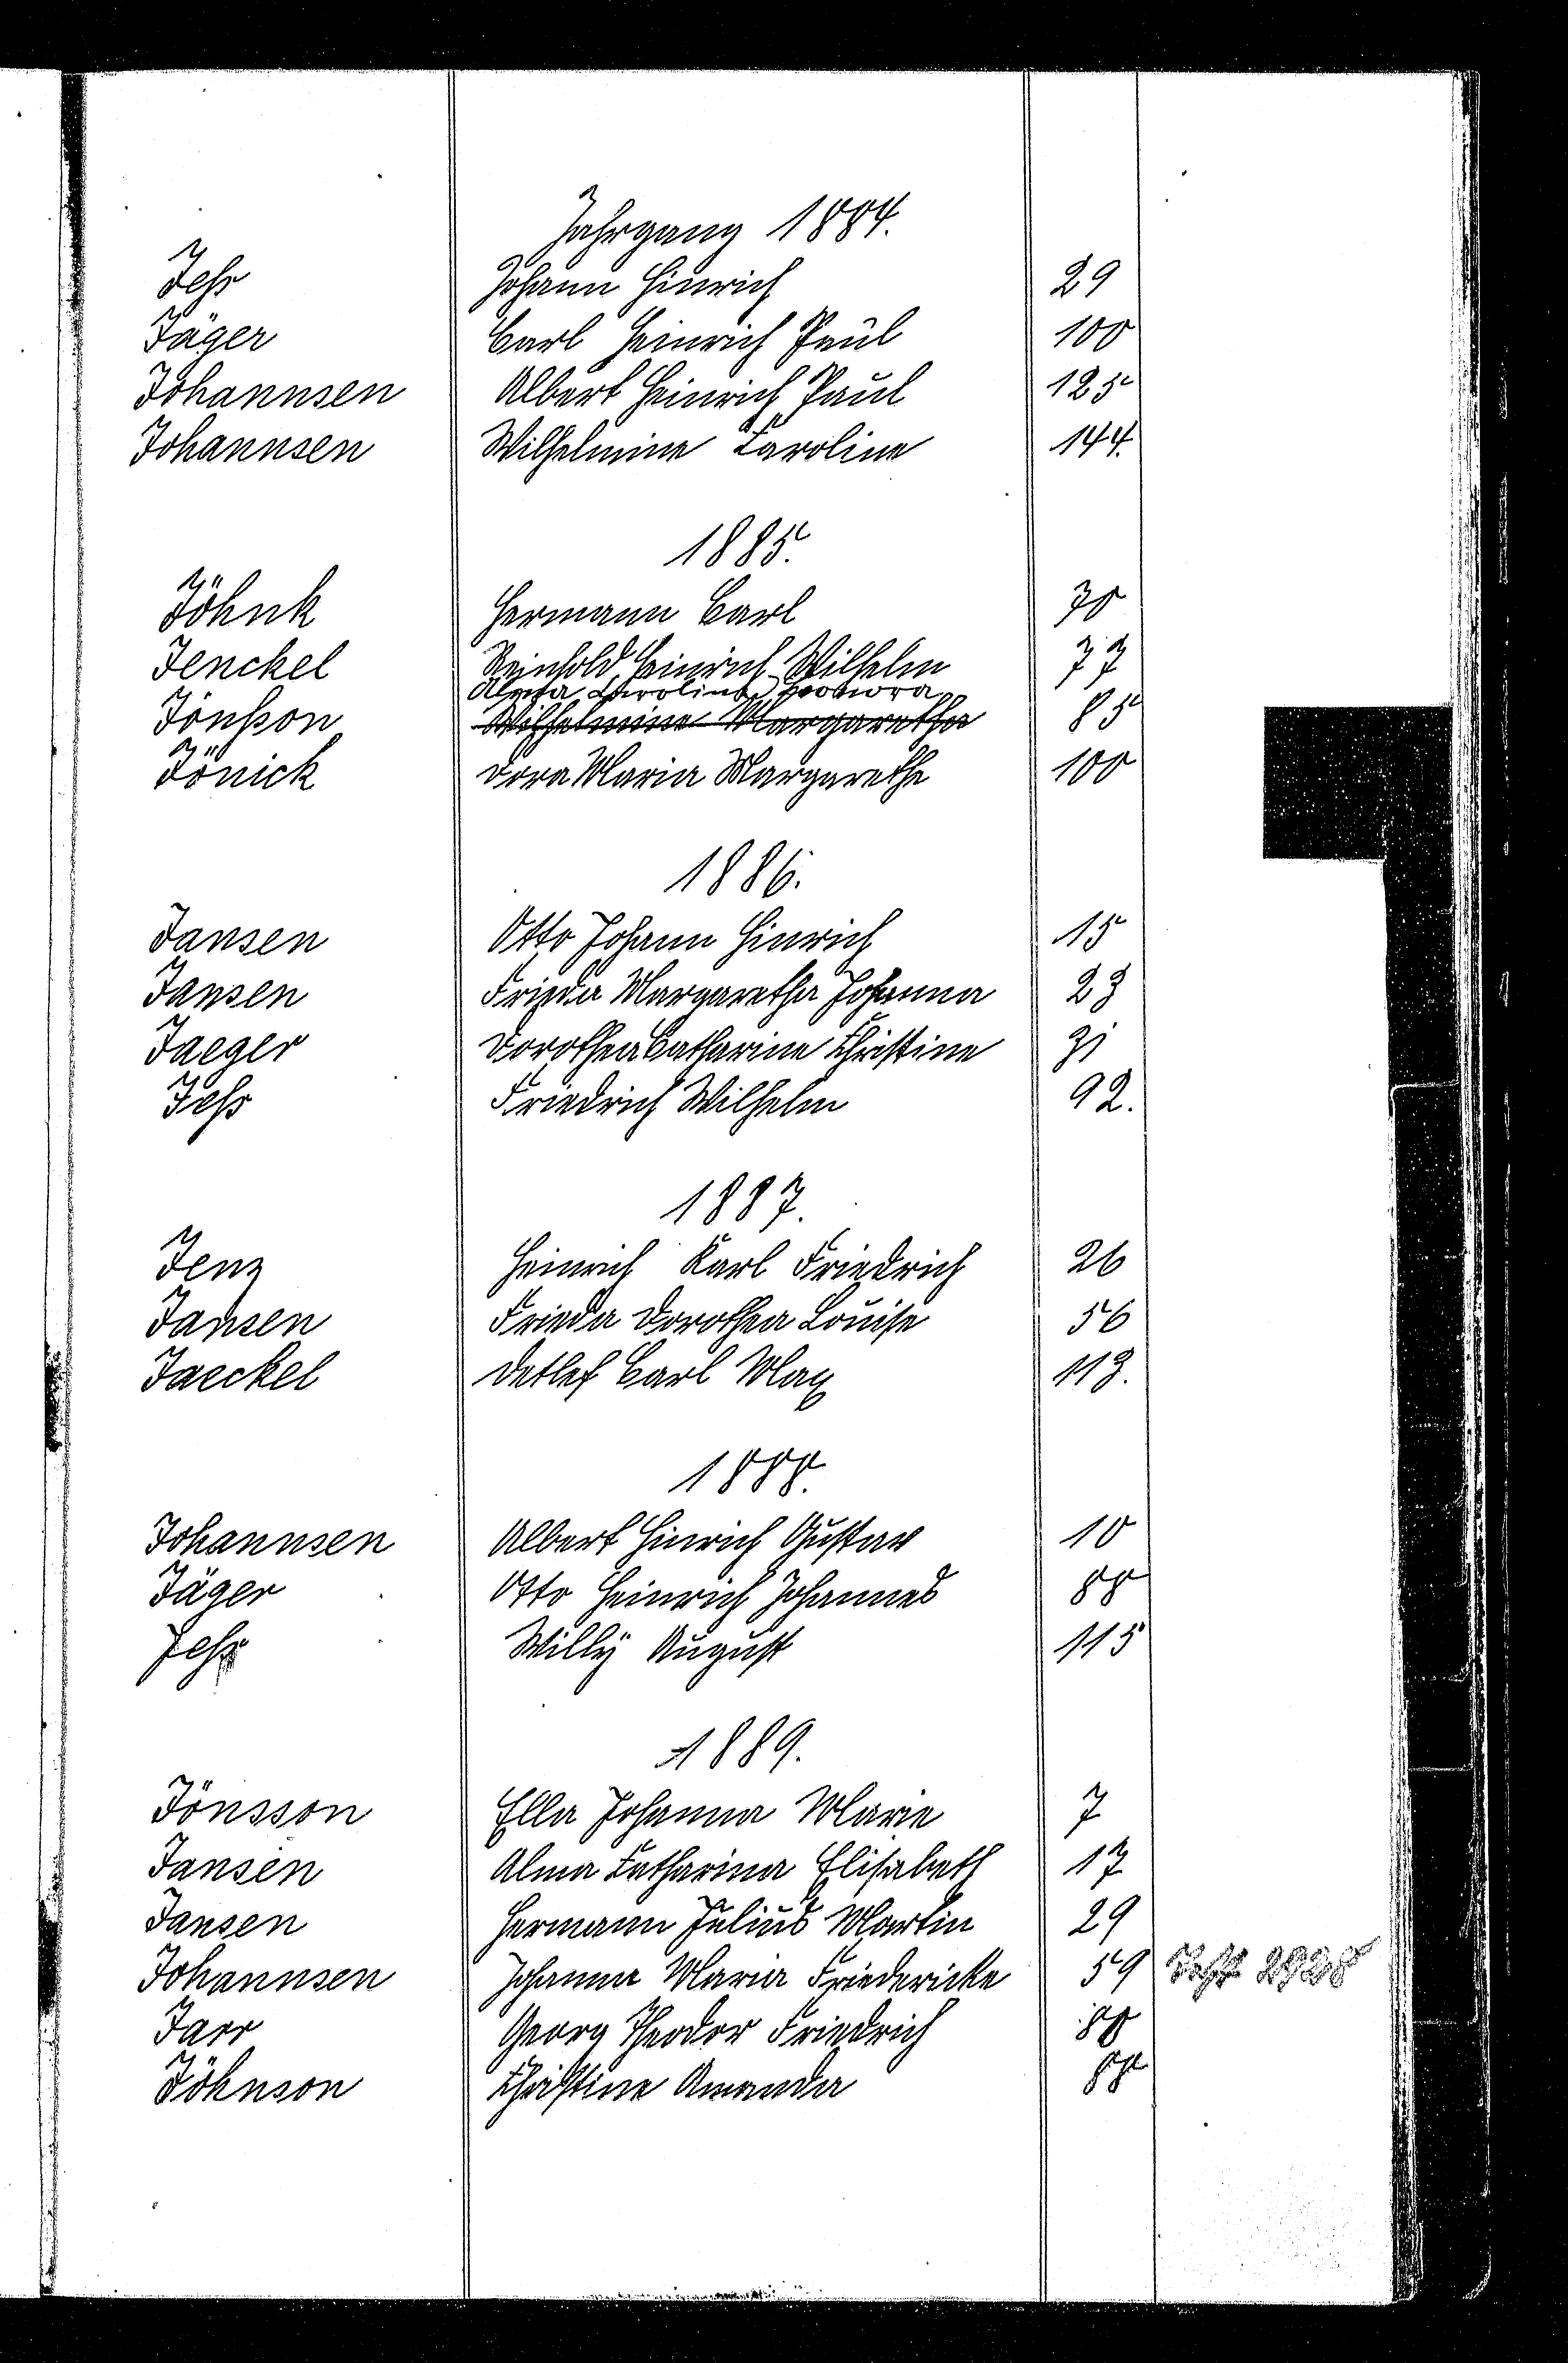 Jahrgang 1884.
Jeß Johann Hinrich 29
Jäger Carl Heinrich Paul 100
Johannsen Albert Heinrich Paul 125
Johannsen Wilhelmine Caroline 144.
1885.
Jöhnk Hermann Carl 70
Jenckel Reinhold Heinrich Wilhelm 77
Caroline
Jönßon Wilhelmine Margaretha 85
Jönick Dora Maria Margarethe 100
1886.
Jansen Otto Johann Hinrich 15
Jansen Frieda Margaretha Johanna 23
Jaeger Dorothea Catharine Christine 31
Jeß Friedrich Wilhelm 92.
1887.
Jenz Heinrich Karl Friedrich 26
Jansen Frieda Dorothea Louise 56
Jaeckel Detlef Carl Max 113.
1888.
Johannsen Albert Hinrich Gustav 10
Jäger Otto Heinrich Johannes 88
Jeß Willÿ August 115
1889.
Jönsson Ella Johanna Marie 7
Jansen Alma Catharina Elisabeth 17
Jansen Hermann Julius Martin 29
Johannsen Johanna Maria Friedericke 59
Jarr Georg Theodor Friedrich 80
Jöhnson Christine Amanda 88